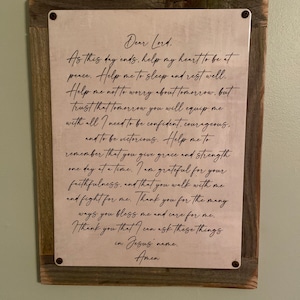 Dear Lord,
As this day ends, help my heart to be at
peace. Help me to sleep and rest well.
Help me not to worry about tomorrow, but
trust that tomorrow you will equip me
with all I need to be confident, courageous,
and to be victorious. Help me to
remember that you give grace and strength
one day at a time. I am grateful for your
faithfulness, and that you walk with me
and fight for me. Thank you for the many
ways you bless me and care for me.
I thank you that I can ask these things
in Jesus name.
Amen